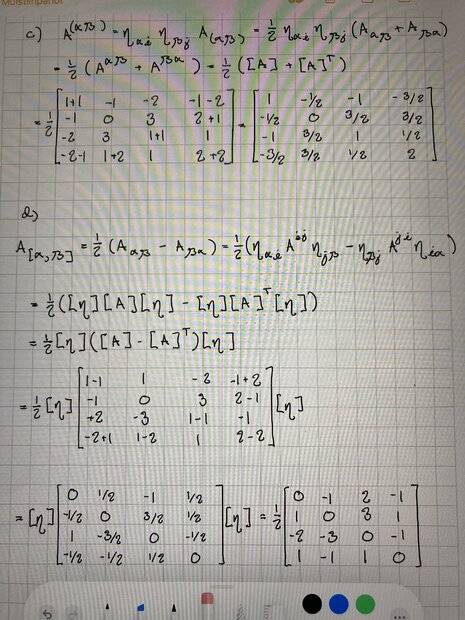 c) A^(αβ) = η_αi η_βj A_(αβ) = 1/2 η_αi η_βj (A_αβ + A_βα)
= 1/2 (A^αβ + A^βα) = 1/2 ([A] + [A]^T)
= 1/2 [ 1+1 -1 -2 -1-2 ; -1 0 3 2+1 ; -2 3 1+1 1 ; -2-1 1+2 1 2+2 ] = [ 1 -1/2 -1 -3/2 ; -1/2 0 3/2 3/2 ; -1 3/2 1 1/2 ; -3/2 3/2 1/2 2 ]
d)
A_[α,β] = 1/2 (A_αβ - A_βα) = 1/2 (η_αi A^ij η_jβ - η_βj A^ji η_iα)
= 1/2 ([η][A][η] - [η][A]^T[η])
= 1/2 [η]([A] - [A]^T)[η]
= 1/2 [η] [ 1-1 1 -2 -1+2 ; -1 0 3 2-1 ; +2 -3 1-1 -1 ; -2+1 1-2 1 2-2 ] [η]
= [η] [ 0 1/2 -1 1/2 ; -1/2 0 3/2 1/2 ; 1 -3/2 0 -1/2 ; -1/2 -1/2 1/2 0 ] [η] = 1/2 [ 0 -1 2 -1 ; 1 0 3 1 ; -2 -3 0 -1 ; 1 -1 1 0 ]